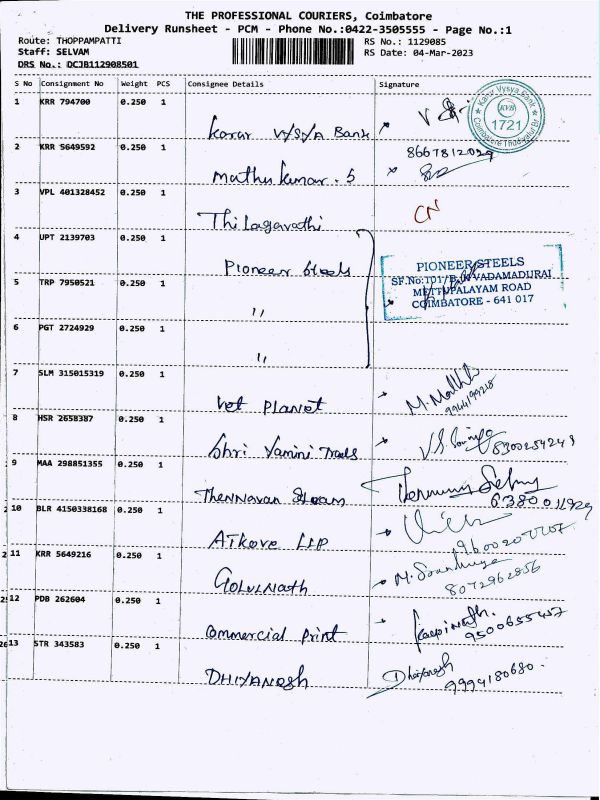 THE PROFESSIONAL COURIERS, Coimbatore
Delivery Runsheet - PCM - Phone No.:0422-3505555 - Page No.:1
Route: THOPPAMPATTI RS No.: 1129085
Staff: SELVAM RS Date: 04-Mar-2023
DRS No.: DCJB112908501
S No Consignment No Weight PCS Consignee Details Signature
1 KRR 794700 0.250 1
Karur Vysya Bank
Karur Vysya Bank
KVB
1721
2 KRR 5649592 0.250 1
8667812029
Muthu Kumar. S
3 VPL 401328452 0.250 1
CN
Thilagavathi
4 UPT 2139703 0.250 1
Pioneer Steels
PIONEER STEELS
VADAMADURAI
METTUPALAYAM ROAD
COIMBATORE - 641 017
5 TRP 7950521 0.250 1
〃
6 PGT 2724929 0.250 1
〃
7 SLM 315015319 0.250 1
Vet Planet
8 HSR 2658387 0.250 1
Shri Yamini Trades
9 MAA 298851355 0.250 1
Thennavan
6380011929
10 BLR 4150338168 0.250 1
LLP
11 KRR 5649216 0.250 1
M.
8072962856
12 PDB 262604 0.250 1
Commercial Print
Gopinath.
9500655457
13 STR 343583 0.250 1
DHIYANESH
Dhiyanesh
9994180680.